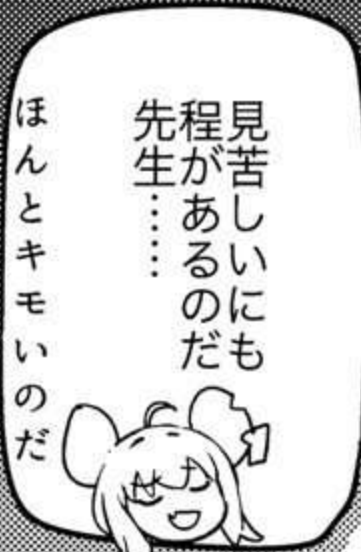 見苦しいにも
程があるのだ
先生……
ほんとキモいのだ